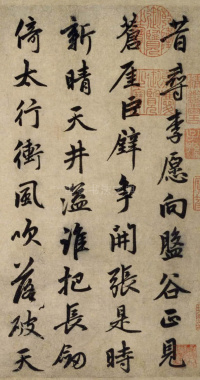 昔尋李愿向盤谷正見
蒼崖巨壁爭開張是時
新晴天井溢誰把長劒
倚太行衝風吹落破天